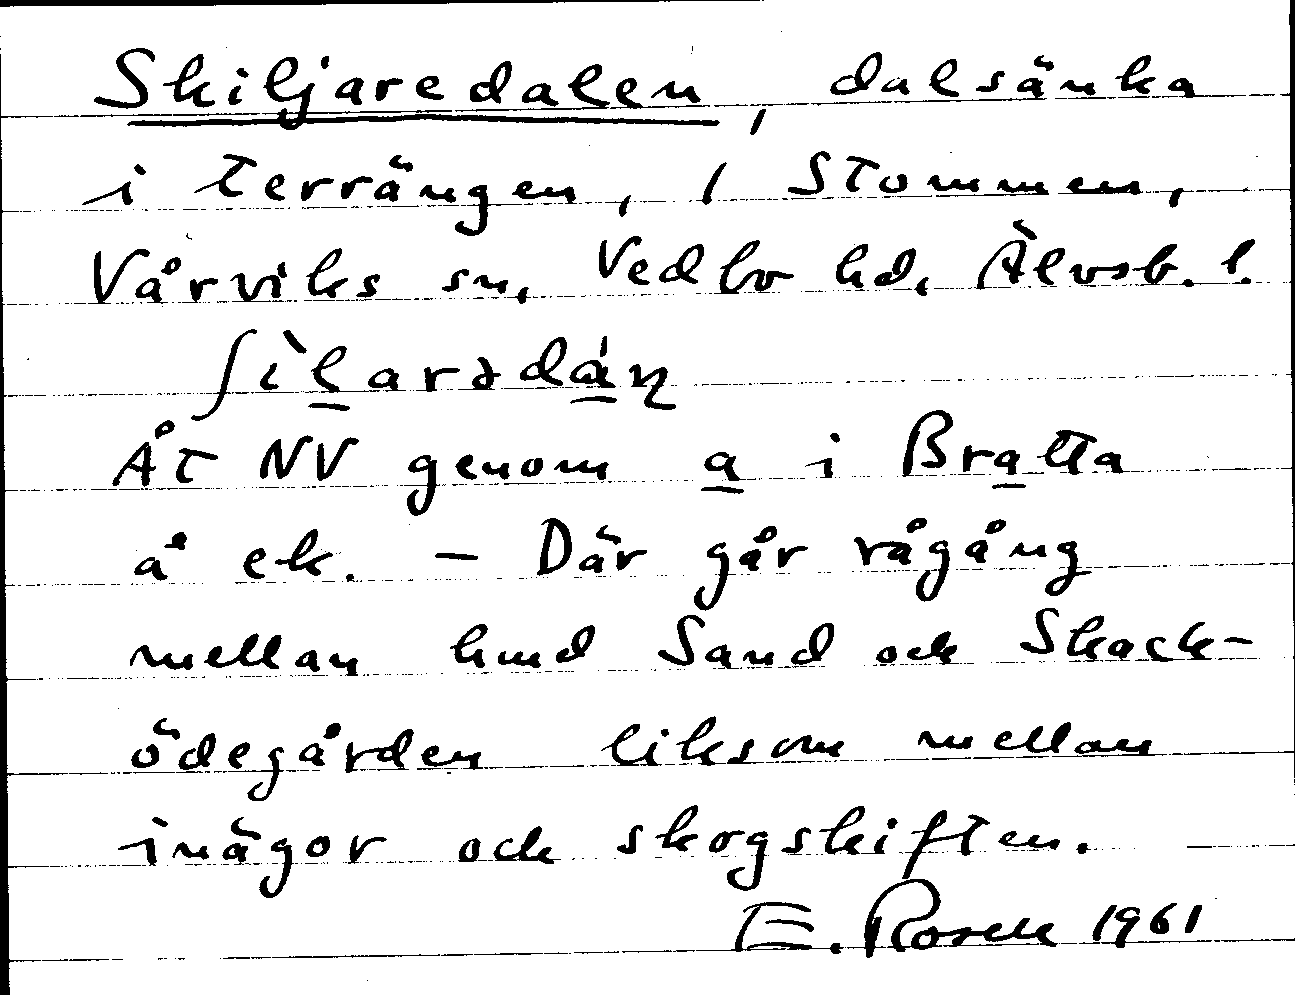 Skiljaredalen, dalsänka
i terrängen, / Stommen,
Vårviks sn, Vedbo hd, Älvsb. l.
ʃìl̲arədá̲ɳ
Åt NV genom a̲ i Bra̲tta
å ek. – Där går rågång
mellan hmd Sand och Skack-
ödegården liksom mellan
inägor och skogskiften.
E. Rosell 1961